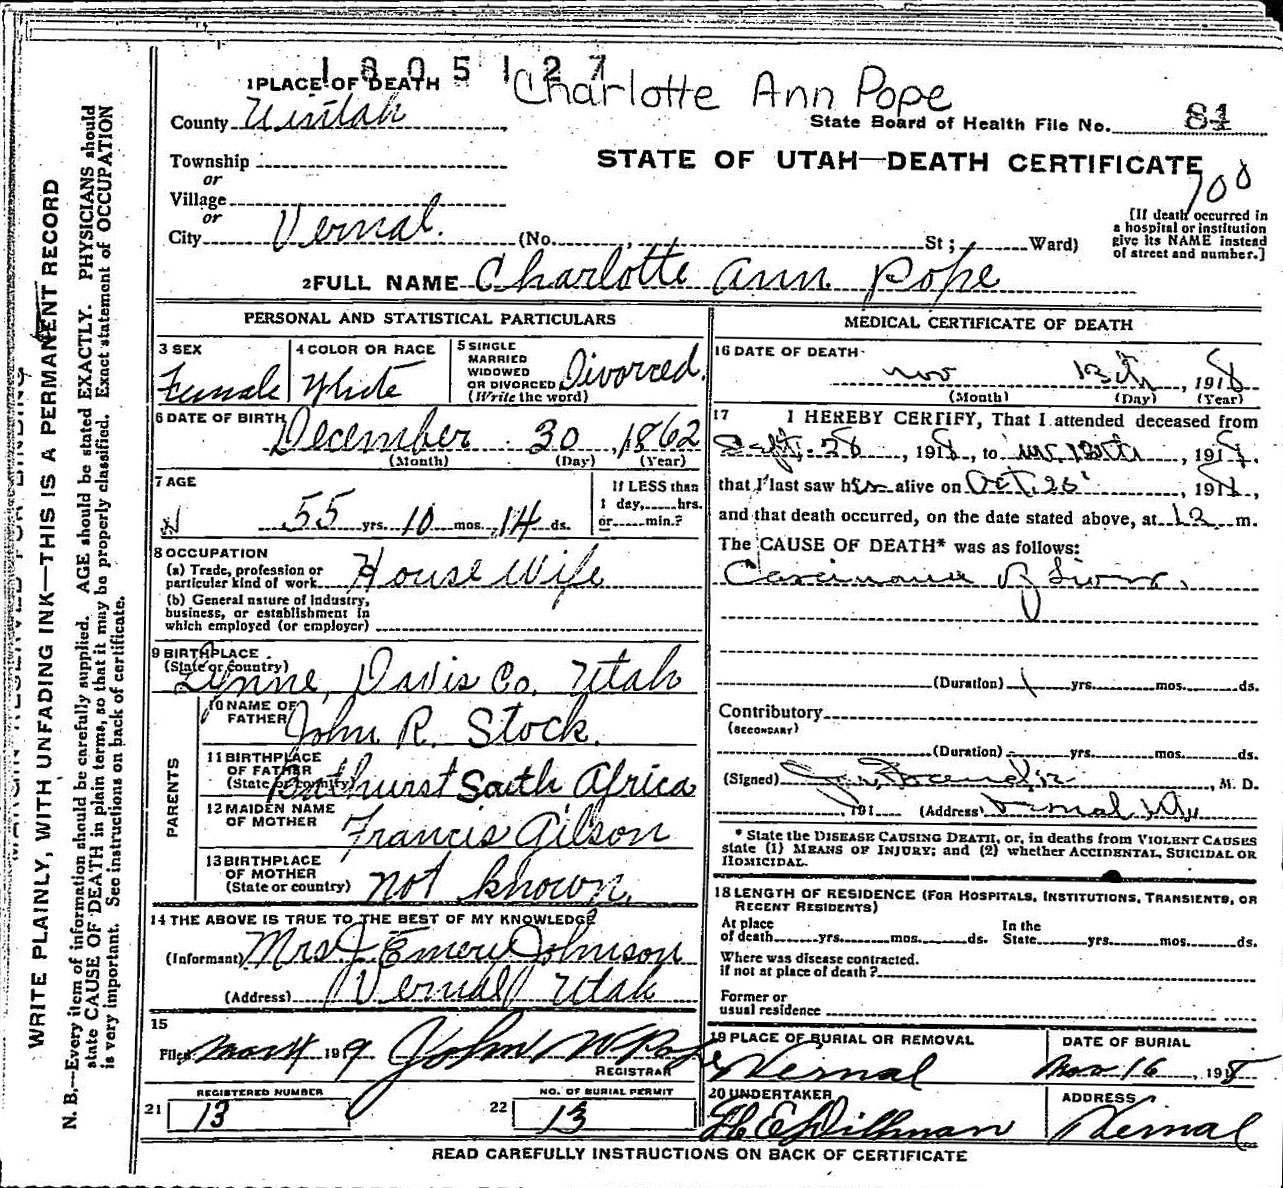 1805127
Charlotte Ann Pope
1 PLACE OF DEATH
County Uintah
State Board of Health File No. 84
Township
or
STATE OF UTAH—DEATH CERTIFICATE
Village
or
700
City Vernal. (No. , St; Ward)
[If death occurred in
a hospital or institution
give its NAME instead
of street and number.]
2 FULL NAME Charlotte Ann Pope
PERSONAL AND STATISTICAL PARTICULARS
3 SEX
Female
4 COLOR OR RACE
White
5 SINGLE
MARRIED
WIDOWED
OR DIVORCED
(Write the word)
Divorced.
6 DATE OF BIRTH
December 30, 1862
(Month) (Day) (Year)
7 AGE
55 yrs. 10 mos. 14 ds.
If LESS than
1 day, hrs.
or min.?
8 OCCUPATION
(a) Trade, profession or
particular kind of work House Wife
(b) General nature of industry,
business, or establishment in
which employed (or employer)
9 BIRTHPLACE
(State or country)
Lynne, Davis Co. Utah
PARENTS
10 NAME OF
FATHER John R. Stock.
11 BIRTHPLACE
OF FATHER
(State or country) Bathurst South Africa
12 MAIDEN NAME
OF MOTHER Francis Gilson
13 BIRTHPLACE
OF MOTHER
(State or country) not known.
14 THE ABOVE IS TRUE TO THE BEST OF MY KNOWLEDGE
(Informant) Mrs J Emery Johnson
(Address) Vernal Utah
15
Filed Mar 4 1919 John N Pope
REGISTRAR
REGISTERED NUMBER
21 13
NO. OF BURIAL PERMIT
22 13
MEDICAL CERTIFICATE OF DEATH
16 DATE OF DEATH
Nov 13th, 1918
(Month) (Day) (Year)
17 I HEREBY CERTIFY, That I attended deceased from
Sept. 28, 1918, to 13th, 1918.
that I last saw h alive on Oct. 26, 191 ,
and that death occurred, on the date stated above, at 12 m.
The CAUSE OF DEATH* was as follows:
Carcinoma of Liver.
(Duration) 1 yrs. mos. ds.
Contributory
(SECONDARY)
(Duration) yrs. mos. ds.
(Signed) , M. D.
, 191 (Address) Vernal
* State the DISEASE CAUSING DEATH, or, in deaths from VIOLENT CAUSES
state (1) MEANS OF INJURY; and (2) whether ACCIDENTAL, SUICIDAL OR
HOMICIDAL.
18 LENGTH OF RESIDENCE (FOR HOSPITALS, INSTITUTIONS, TRANSIENTS, OR
RECENT RESIDENTS)
At place
of death yrs. mos. ds.
In the
State yrs. mos. ds.
Where was disease contracted.
if not at place of death?
Former or
usual residence
19 PLACE OF BURIAL OR REMOVAL
Vernal
DATE OF BURIAL
Nov 16, 1918
20 UNDERTAKER
H E Dillman
ADDRESS
Vernal
READ CAREFULLY INSTRUCTIONS ON BACK OF CERTIFICATE
MARGIN RESERVED FOR BINDING
WRITE PLAINLY, WITH UNFADING INK—THIS IS A PERMANENT RECORD
N. B.—Every item of information should be carefully supplied. AGE should be stated EXACTLY. PHYSICIANS should
state CAUSE OF DEATH in plain terms, so that it may be properly classified. Exact statement of OCCUPATION
is very important. See instructions on back of certificate.